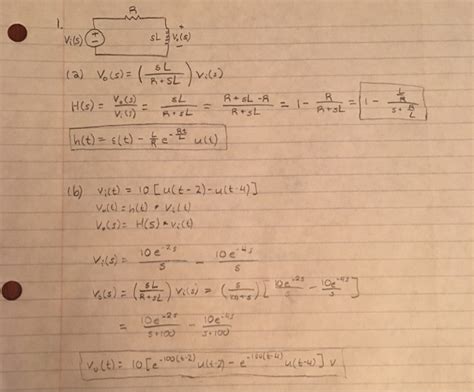 1.
R
Vi(s)
sL
+
Vo(s)
-
(a) Vo(s) = (sL / R+sL) Vi(s)
H(s) = Vo(s) / Vi(s) = sL / R+sL = R+sL-R / R+sL = 1 - R / R+sL = 1 - L/R / s+R/L
h(t) = δ(t) - L/R e^-Rt/L u(t)
(b) vi(t) = 10 [u(t-2) - u(t-4)]
Vo(t) = h(t) * Vi(t)
Vo(s) = H(s) • Vi(s)
Vi(s) = 10e^-2s / s - 10e^-4s / s
Vo(s) = (sL / R+sL) Vi(s) = (s / 100+s) [10e^-2s / s - 10e^-4s / s]
= 10e^-2s / s+100 - 10e^-4s / s+100
Vo(t) = 10 [e^-100(t-2) u(t-2) - e^-100(t-4) u(t-4)] V